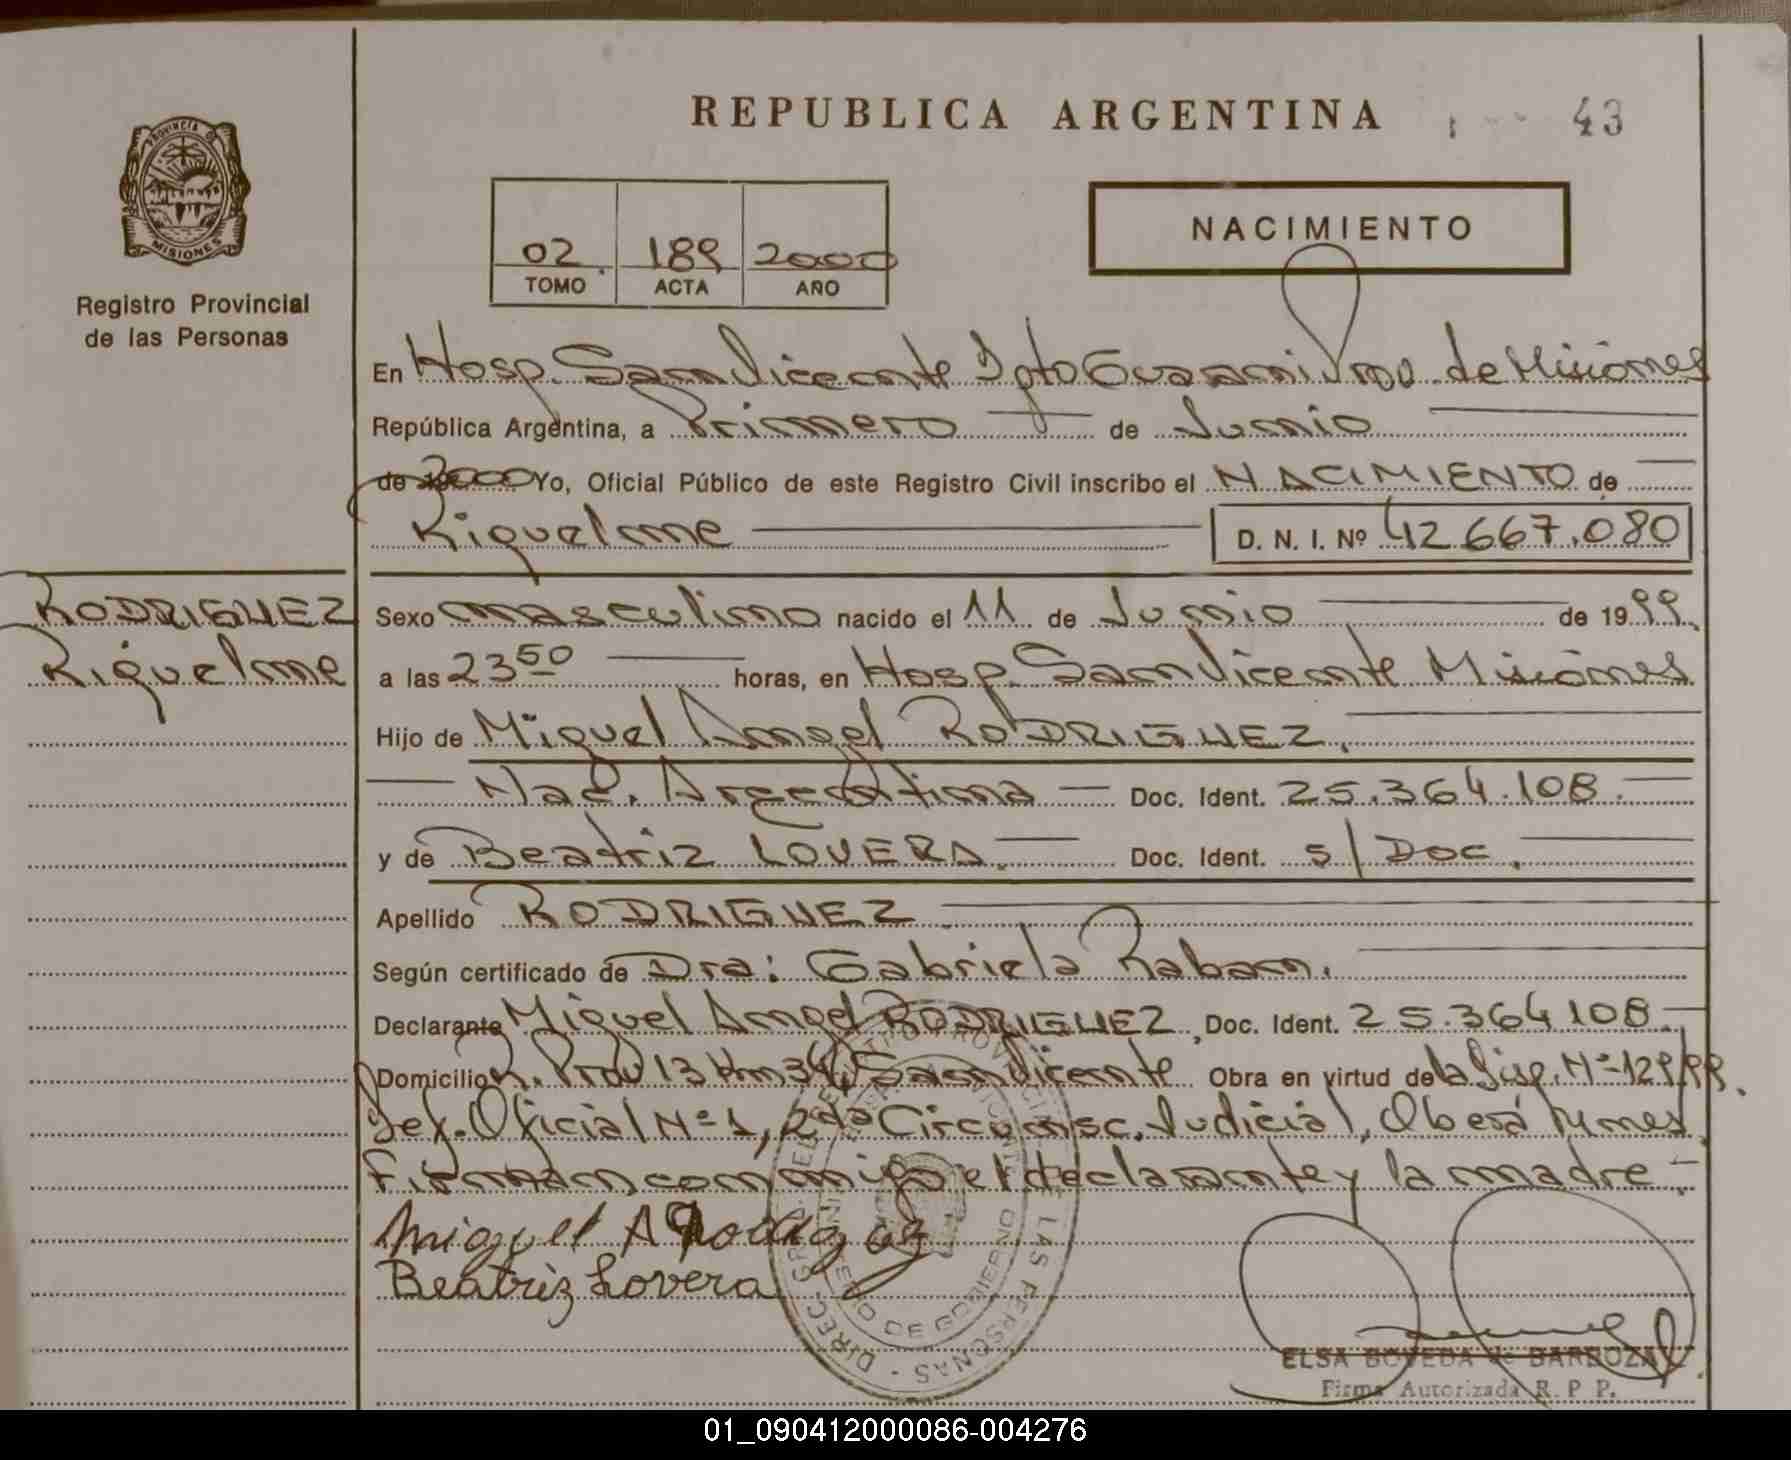 REPUBLICA ARGENTINA
43
PROVINCIA DE
MISIONES
Registro Provincial
de las Personas
02 189 2000
TOMO ACTA AÑO
NACIMIENTO
En Hosp. San Vicente Dpto Guarani Prov. de Misiones
República Argentina, a Primero de Junio
de 2000 Yo, Oficial Público de este Registro Civil inscribo el NACIMIENTO de
Riquelme D. N. I. Nº 42.667.080
RODRIGUEZ
Riquelme
Sexo masculino nacido el 11 de Junio de 1999
a las 23 50 horas, en Hosp. San Vicente Misiones
Hijo de Miguel Angel RODRIGUEZ.
Nac. Argentina Doc. Ident. 25.364.108
y de Beatriz LOVERA. Doc. Ident. s/Doc.
Apellido RODRIGUEZ
Según certificado de Dra: Gabriela Raban.
Declarante Miguel Angel RODRIGUEZ, Doc. Ident. 25.364.108.
Domicilio R. Prov 13 Km 34, San Vicente Obra en virtud de la Disp. Nº 129/99.
Def. Oficial Nº 1, 2da Circunsc. Judicial, Oberá Mnes.
Firman conmigo el declarante y la madre.
Miguel A Rodriguez
Beatriz Lovera
DIREC. GRAL. DEL REGISTRO PROVINCIAL DE LAS PERSONAS
DE GOBIERNO
ELSA BOVEDA de BARBOZA
Firma Autorizada R. P. P.
01_090412000086-004276